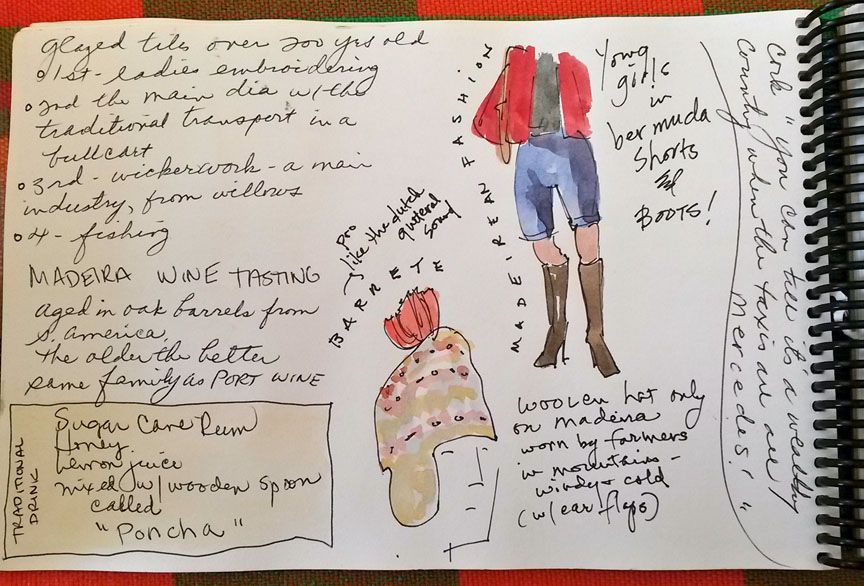 glazed tiles over 200 yrs old
1st - ladies embroidering
2nd the main dia w/the
traditional transport in a
bullcart
3rd - wickerwork - a main
industry, from willows
4 - fishing
MADEIRA WINE TASTING
aged in oak barrels from
S. America
the older the better
same family as PORT WINE
TRADITIONAL
DRINK
Sugar Cane Rum
Honey
Lemon juice
mixed w/wooden spoon
called
"Poncha"
pro
like the dutch
gutteral
sound
BARRETE
MADEIREAN FASHION
Young
girls
in
bermuda
shorts
BOOTS!
woolen hat only
on Madeira
worn by farmers
in mountains -
windy + cold
(w/ear flaps)
Cork "you can tell it's a wealthy
country when the taxis are all
Mercedes!"